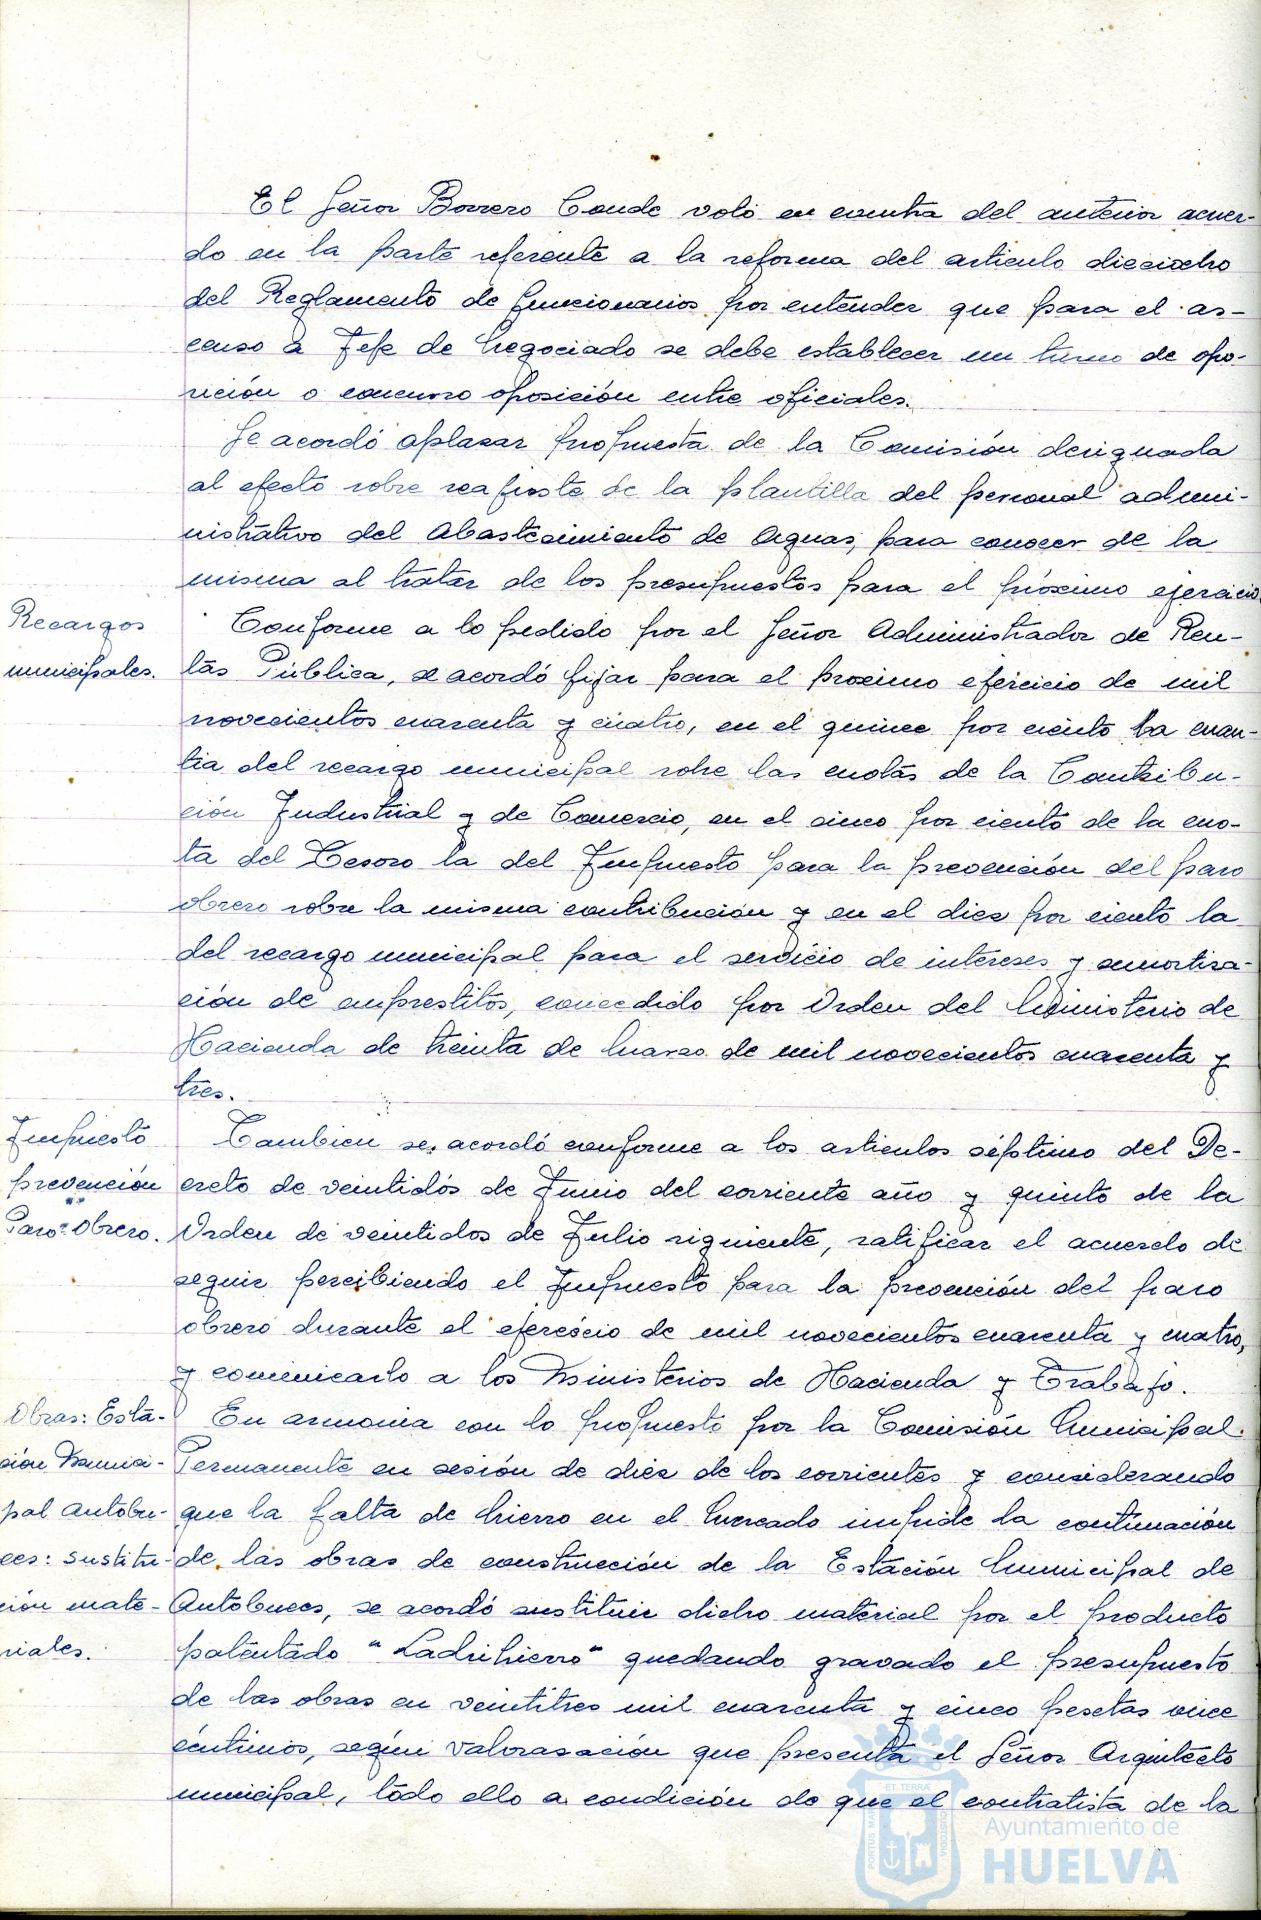 El Señor Borrero Conde votó en contra del anterior acuer-
do en la parte referente a la reforma del articulo dieciocho
del Reglamento de funcionarios por entender que para el as-
censo a Jefe de Negociado se debe establecer un turno de opo-
sición o concurso oposición entre oficiales.
Se acordó aplazar propuesta de la Comisión designada
al efecto sobre reajuste de la plantilla del personal admi-
nistrativo del Abastecimiento de Aguas, para conocer de la
misma al tratar de los presupuestos para el próximo ejercicio.
Recargos
municipales.
Conforme a lo pedido por el Señor Administrador de Ren-
tas Pública, se acordó fijar para el proximo ejercicio de mil
novecientos cuarenta y cuatro, en el quince por ciento la cuan-
tia del recargo municipal sobre las cuotas de la Contribu-
ción Industrial y de Comercio, en el cinco por ciento de la cuo-
ta del Tesoro la del Impuesto para la prevención del paro
obrero sobre la misma contribución y en el diez por ciento la
del recargo municipal para el servicio de intereses y amortiza-
ción de emprestitos, concedido por Orden del Ministerio de
Hacienda de treinta de Marzo de mil novecientos cuarenta y
tres.
Impuesto
prevención
Paro Obrero.
Tambien se acordó conforme a los articulos séptimo del De-
creto de veintidós de Junio del corriente año y quinto de la
Orden de veintidos de Julio siguiente, ratificar el acuerdo de
seguir percibiendo el Impuesto para la prevención del paro
obrero durante el ejercicio de mil novecientos cuarenta y cuatro,
y comunicarlo a los Ministerios de Hacienda y Trabajo.
Obras: Esta-
ción Munici-
pal Autobu-
ses: sustitu-
ción mate-
riales.
En armonia con lo propuesto por la Comisión Municipal
Permanente en sesión de diez de los corrientes y considerando
que la falta de hierro en el Mercado impide la continuación
de las obras de construcción de la Estación Municipal de
Autobuses, se acordó sustituir dicho material por el producto
patentado "Ladrihierro" quedando gravado el presupuesto
de las obras en veintitres mil cuarenta y cinco pesetas once
céntimos, según valorasación que presenta el Señor Arquitecto
municipal, todo ello a condición de que el contratista de la
ET TERRÆ
PORTUS MARIS
CUSTODIA
Ayuntamiento de
HUELVA